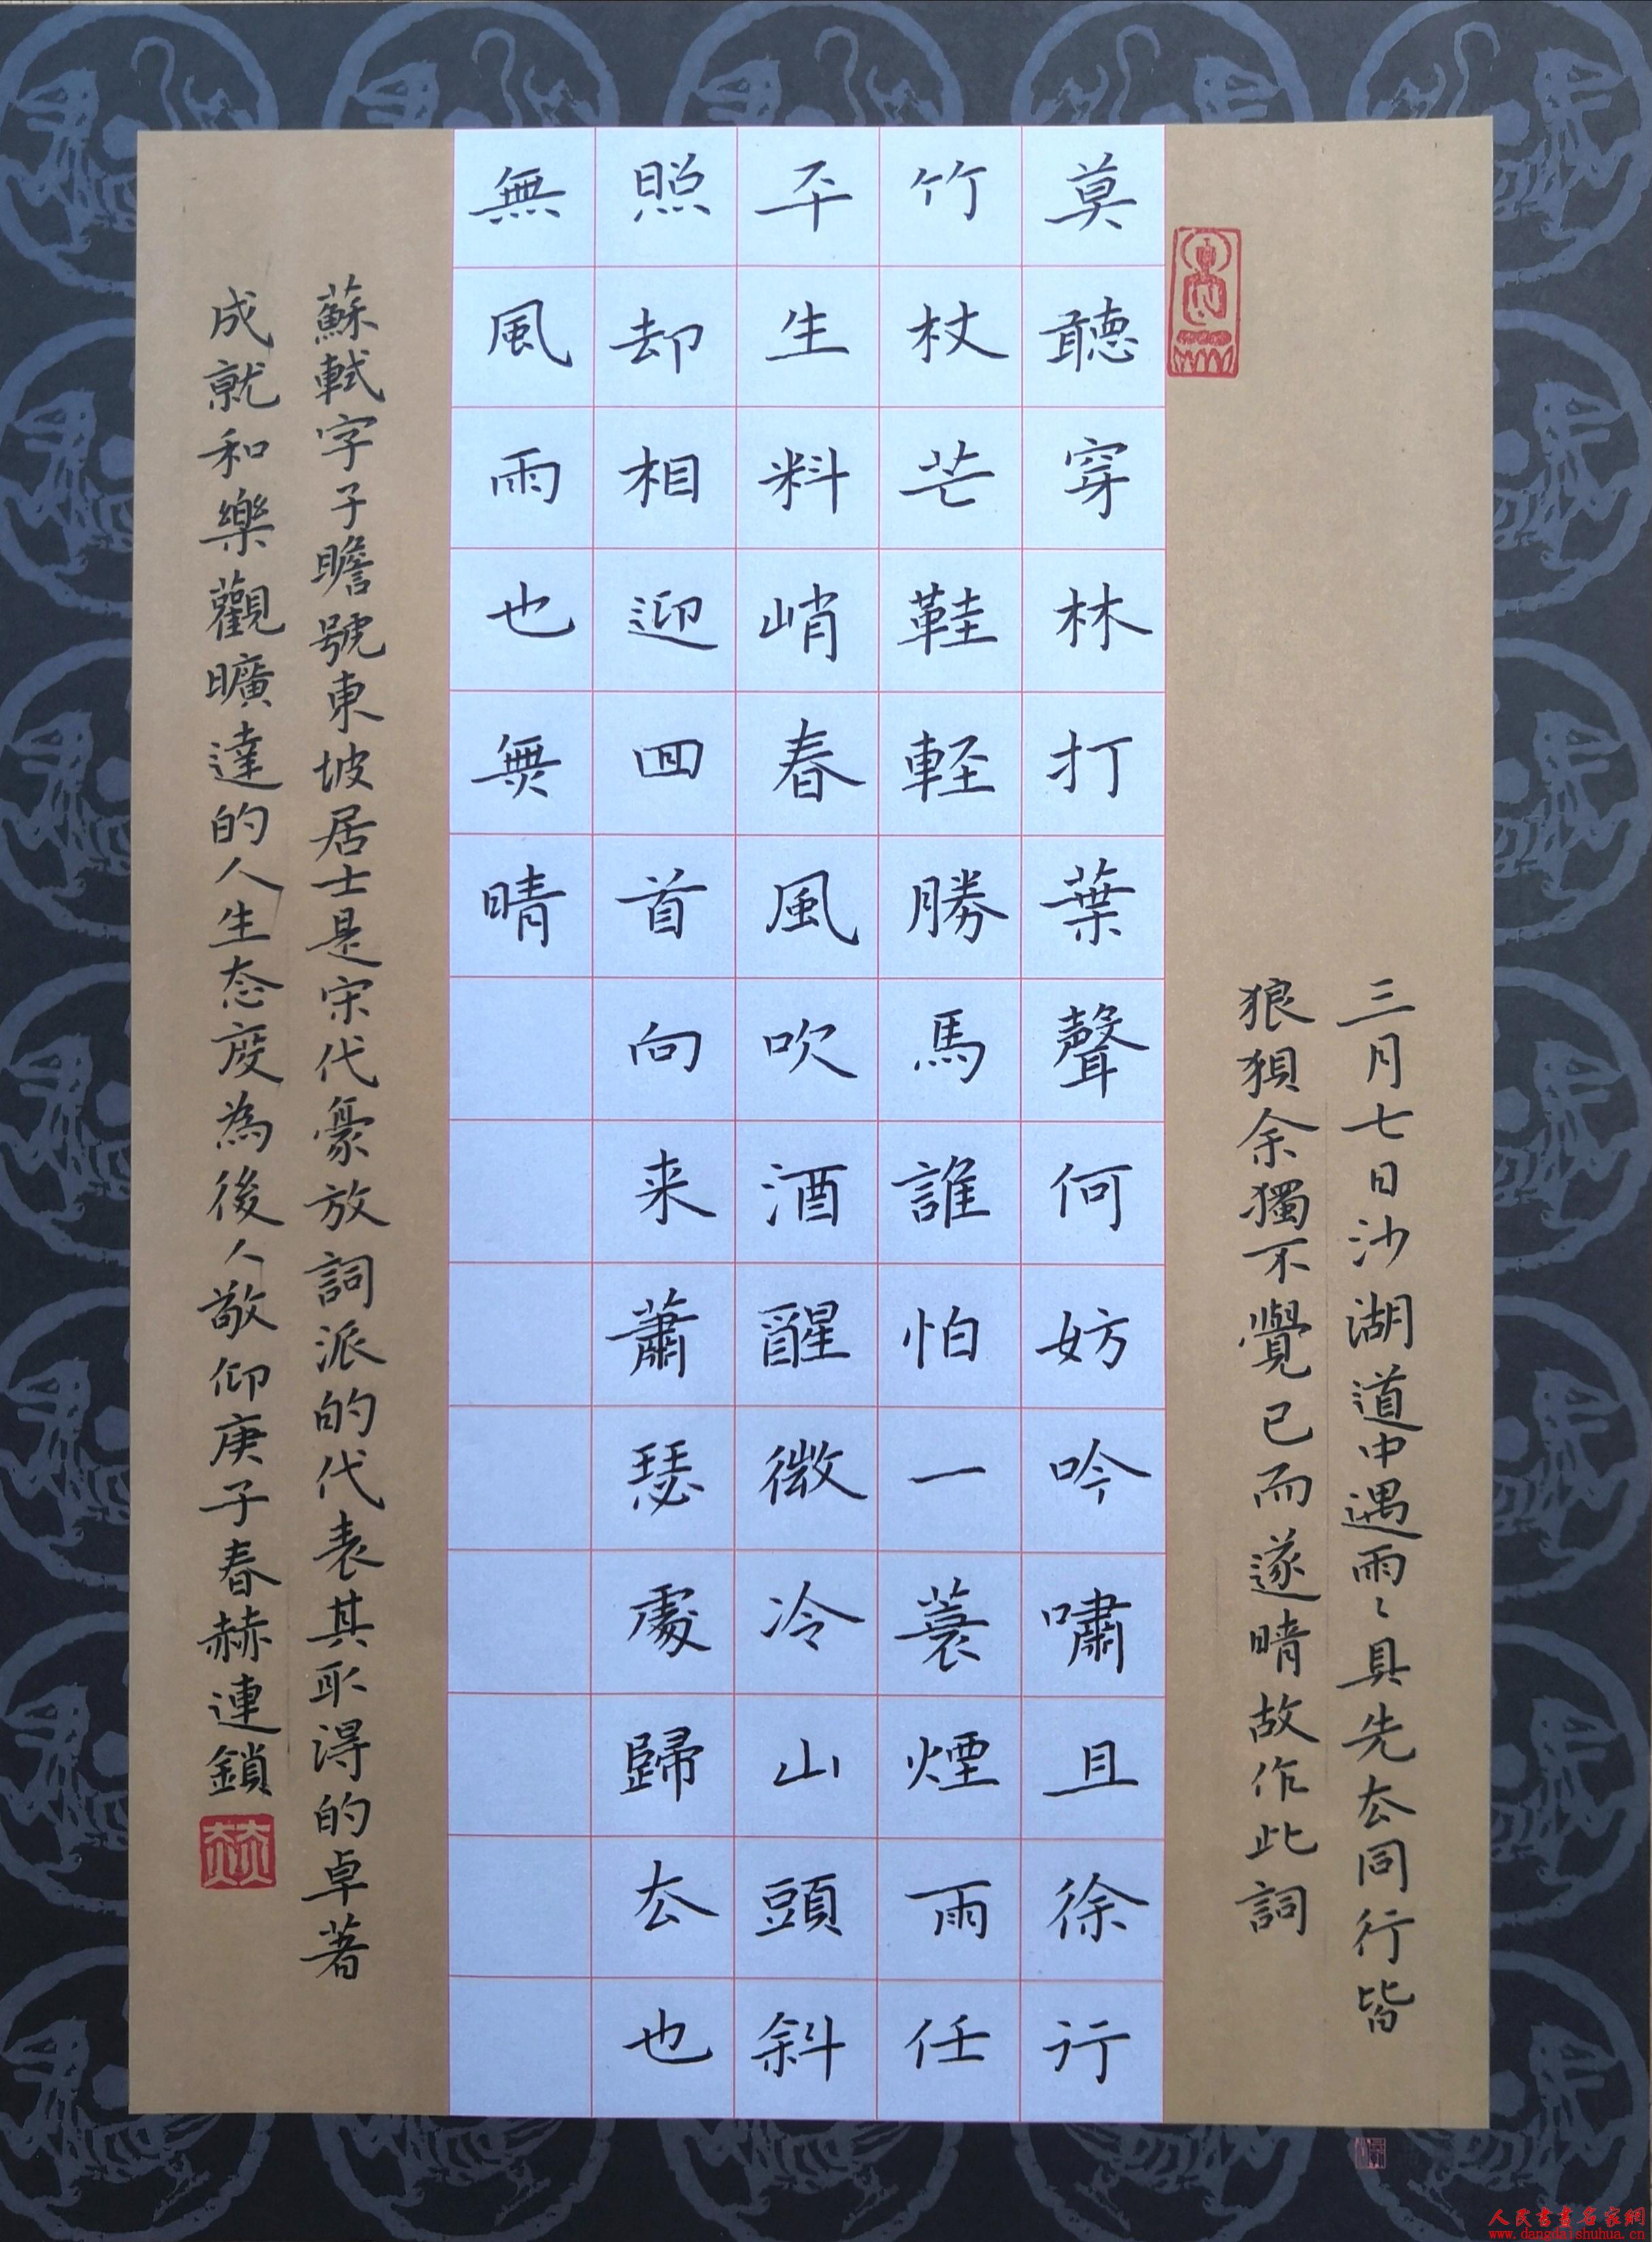 三月七日沙湖道中遇雨〻具先去同行皆
狼狽余獨不覺已而遂晴故作此詞
莫聽穿林打葉聲何妨吟嘯且徐行
竹杖芒鞋輕勝馬誰怕一蓑煙雨任
平生料峭春風吹酒醒微冷山頭斜
照却相迎回首向来蕭瑟處歸去也
無風雨也無晴
蘇軾字子瞻號東坡居士是宋代豪放詞派的代表其取得的卓著
成就和樂觀曠達的人生态度為後人敬仰庚子春赫連鎖
赫
人民書畫名家網
www.dangdaishuhua.cn